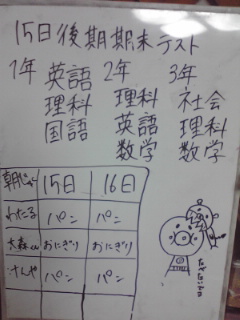 15日後期期末テスト
1年 英語 2年 3年
理科 理科 社会
国語 英語 理科
数学 数学
15日 16日
わたる パン パン
大森くん おにぎり おにぎり
けんや パン パン